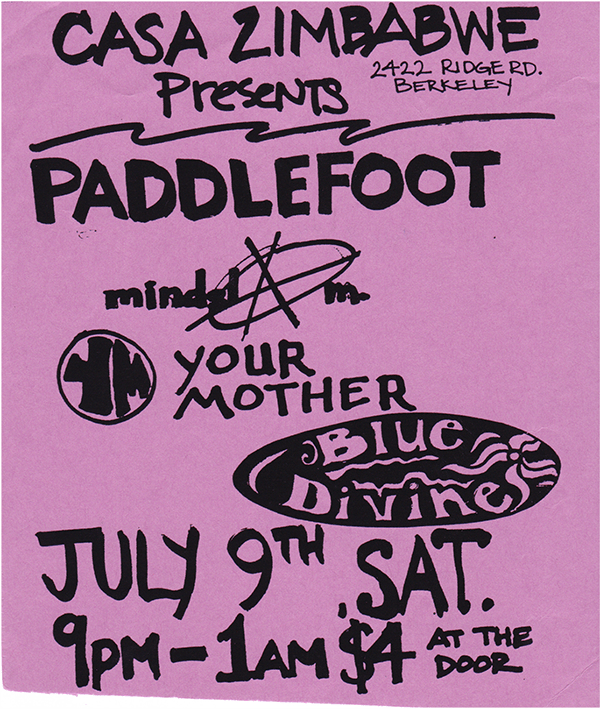 CASA ZIMBABWE
2422 RIDGE RD.
BERKELEY
Presents
PADDLEFOOT
mindslam.
YM
YOUR
MOTHER
Blue
Divine
JULY 9TH, SAT.
9PM - 1AM $4 AT THE
DOOR